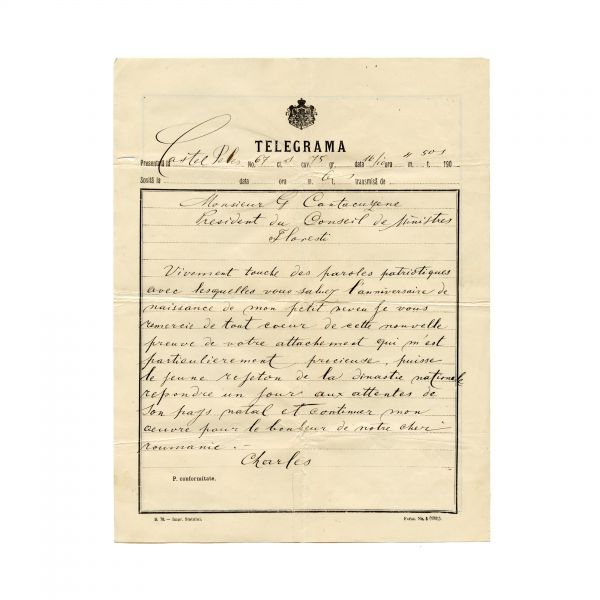 TELEGRAMA
Presentată la Castel Peles No. 67 cl. s cuv. 75 gr. data 16/10 ora 4 m. 50 t. s 190
Sosită la data ora m. 6 t. s transmisă de
Monsieur G Cantacuzene
President du Conseil de Ministres
Floresti
Vivement touche des paroles patriotiques
avec lesquelles vous saluez l'anniversaire de
naissance de mon petit neveu je vous
remercie de tout coeur de cette nouvelle
preuve de votre attachement qui m'est
particulierement precieuse, puisse
le jeune rejeton de la dinastie nationale
repondre un jour aux attentes de
son pays natal et continuer mon
oeuvre pour le bonheur de notre cheri
roumanie.-
Charles
P. conformitate.
B. 70. — Impr. Statului. Form. No. 4